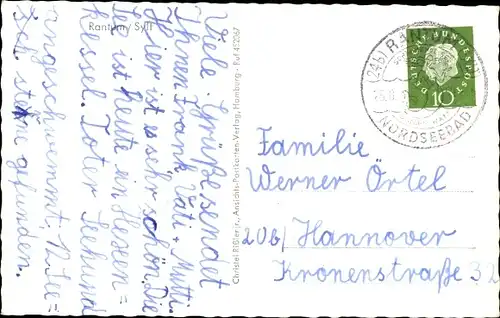 Rantum / Sylt
Viele Grüße sendet
Ihnen Frank, Vati + Mutti.
Hier ist es sehr schön. Die
See ist heute ein Hexen=
kessel. Toter Seehund
angeschwemmt, 12 See=
sterne gefunden.
Christel Rißler, Ansichts-Postkarten-Verlag, Hamburg - Ruf 452067
(24b) RAN
NORDSEEBAD
DEUTSCHE BUNDESPOST
10
Familie
Werner Örtel
20b/ Hannover
Kronenstraße 32